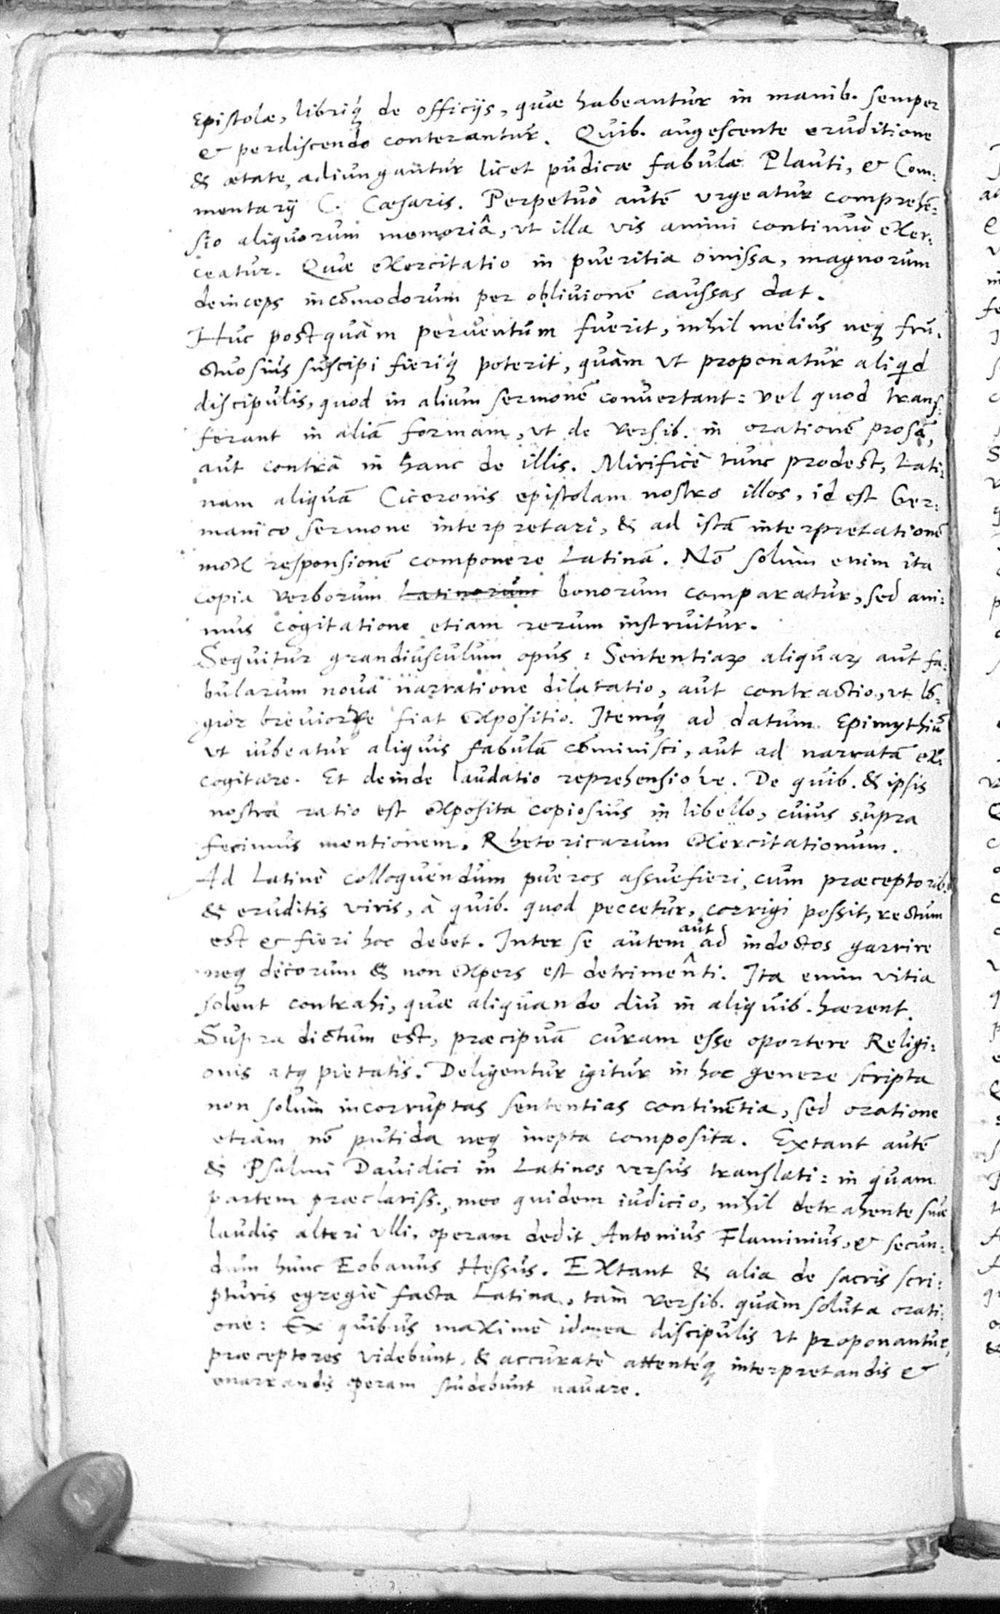 Epistolæ, libriq́ de officijs, quæ habeantur in manib. semper
& perdiscendo conterantur. Quib. augescente eruditione
& ætate, adiungantur licet pudicæ fabulæ Plauti, & Com-
mentarij C. Cæsaris. Perpetuò autē urgeatur comprehē-
sio aliquorum memoriâ, ut illa vis animi continuò exer-
ceatur. Quæ exercitatio in pueritia omissa, magnorum
deinceps incōmodorum per obliuionē caussas dat.
Huc postquàm peruentum fuerit, nihil melius neq fru-
ctuosius suscipi fieriq́ poterit, quàm ut proponatur aliqd
discipulis, quod in alium sermonē conuertant: vel quod trans-
ferant in aliā formam, ut de versib. in orationē prosā,
aut contrà in hanc de illis. Mirificè tunc prodest, Lati-
nam aliquā Ciceronis epistolam nostro illos, id est Ger-
manico sermone interpretari, & ad istā interpretationē
mox responsionē componere Latinā. Nō solùm enim ita
copia verborum Latinorum bonorum comparatur, sed ani-
mus cogitatione etiam rerum instruitur.
Sequitur grandiusculum opus: Sententiaꝝ aliquaꝝ aut fa-
bularum nouâ narratione dilatatio, aut contractio, ut lō-
gior breviorve fiat expositio. Itemq́ ad datum Epimythiū
ut iubeatur aliquis fabulā cōminisci, aut ad narratā ex-
cogitare. Et deinde laudatio reprehensio've. De quib. & ipsis
nostra ratio est exposita copiosius in libello, cuius supra
fecimus mentionem, Rhetoricarum Exercitationum.
Ad Latinè colloquendum pueros assuefieri, cum præceptorib.
& eruditis viris, à quib. quod peccetur, corrigi possit, rectum
est & fieri hoc debet. Inter se autem aut ad indoctos garrire
neq decorum & non expers est detrimenti. Ita enim vitia
solent contrahi, quæ aliquando diu in aliquib. hærent.
Supra dictum est, præcipuā curam esse oportere Religi-
onis atq pietatis. Deligentur igitur in hoc genere scripta
non solùm incorruptas sententias continētia, sed oratione
etiàm nō putida neq inepta composita. Extant autē
& Psalmi Dauidici in Latinos versus translati: in quam
partem præclariss., meo quidem iudicio, nihil detrahente suæ
laudis alteri ulli, operam dedit Antonius Flaminius, & secun-
dum hunc Eobanus Hessus. Extant & alia de sacris scri-
pturis egregiè facta Latina, tam versib. quàm soluta orati-
one: Ex quibus maximè idonea discipulis ut proponantur,
præceptores videbunt, & accuratè attentéq́ interpretandis &
enarrandis operam studebunt nauare.